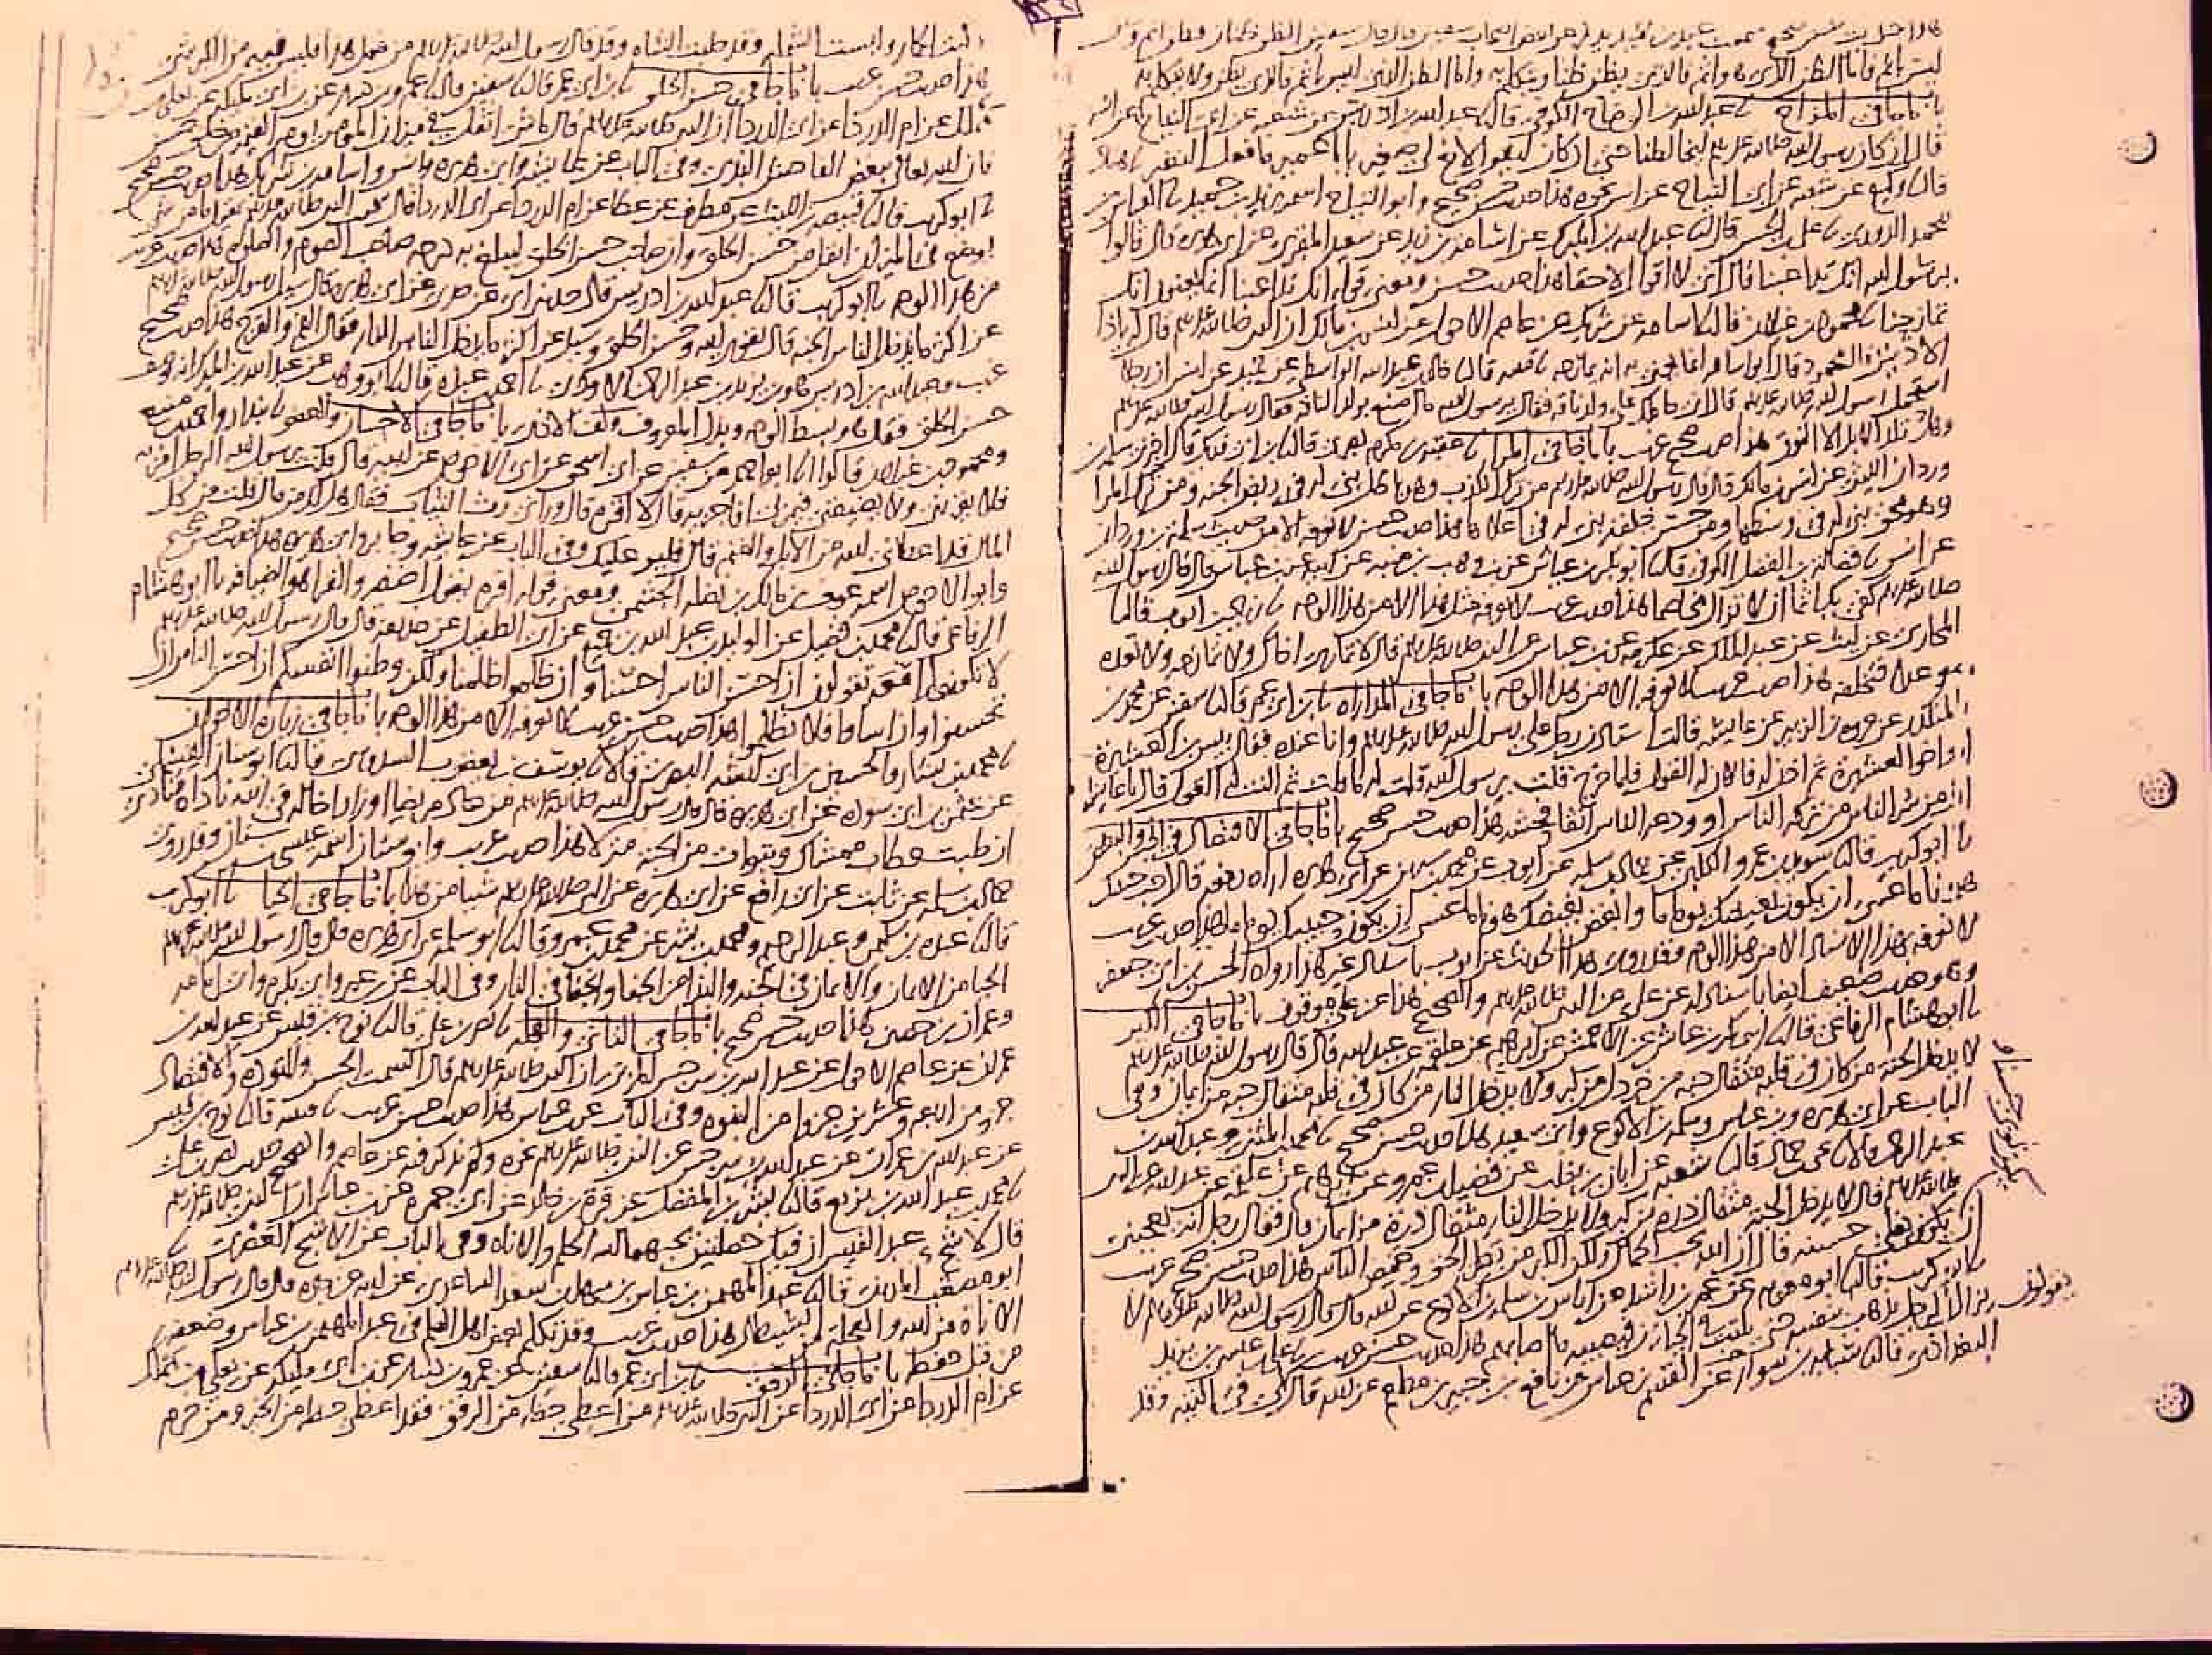 ليس باثم فاما الظن الذي هو اثم فالذي يظن ظنا ويتكلم به واما الظن الذي ليس باثم فالذي يظن ولا يتكلم به
باب ما جا في المزاح نا عبد الله بن الوضاح الكوفي قال نا عبد الله بن ادريس عن شعبة عن ابي التياح عن انس
قال ان كان رسول الله صلى الله عليه وسلم ليخالطنا حتى ان كان ليقول لاخ لي صغير يا با عمير ما فعل النغير نا هناد
قال نا وكيع عن شعبة عن ابي التياح عن انس نحوه هذا حديث حسن صحيح وابو التياح اسمه يزيد بن حميد نا العباس بن
محمد الدوري نا علي بن الحسن قال نا عبد الله بن المبرك عن اسامة بن زيد عن سعيد المقبري عن ابي هريرة قال قالوا
يرسول الله انك تداعبنا قال اني لا اقول الا حقا هذا حديث حسن ومعنى قوله انك تداعبنا انما يعنون انك
تمازحنا نا محمود بن غيلان قال نا ابو اسامة عن شريك عن عاصم الاحول عن انس بن مالك ان النبي صلى الله عليه وسلم قال له ياذا
الاذنين قال محمود قال ابو اسامة انما يعني به انه يمازحه نا قتيبة قال نا خالد بن عبد الله الواسطي عن حميد عن انس ان رجلا
استحمل رسول الله صلى الله عليه وسلم قال اني حاملك على ولد ناقة فقال يرسول الله ما اصنع بولد الناقة فقال رسول الله صلى الله عليه وسلم
وهل تلد الابل الا النوق هذا حديث صحيح غريب باب ما جا في المرا نا عقبة بن مكرم البصري قال نا ابن ابي فديك قال اخبرني سلمة بن
وردان الليثي عن انس بن مالك قال قال رسول الله صلى الله عليه وسلم من ترك الكذب وهو باطل بني له في ربض الجنة ومن ترك المرا
وهو محق بني له في وسطها ومن حسن خلقه بني له في اعلاها هذا حديث حسن لا نعرفه الا من حديث سلمة بن وردان
عن انس نا فضالة بن الفضل الكوفي قال نا ابو بكر بن عياش عن ابن وهب بن منبه عن ابيه عن ابن عباس قال قال رسول الله
صلى الله عليه وسلم كفى بك اثما ان لا تزال مخاصما هذا حديث غريب لا نعرفه مثل هذا الا من هذا الوجه نا زياد بن ايوب قال نا
المحاربي عن ليث عن عبد الملك عن عكرمة عن ابن عباس عن النبي صلى الله عليه وسلم قال لا تمار اخاك ولا تمازحه ولا تعده
موعدا فتخلفه هذا حديث غريب لا نعرفه الا من هذا الوجه باب ما جا في المداراه نا ابن ابي عمر قال نا سفين عن محمد بن
المنكدر عن عروة بن الزبير عن عايشة قالت استاذن رجل على رسول الله صلى الله عليه وسلم وانا عنده فقال بيس ابن العشيرة
او اخو العشيرة ثم اذن له فالان له القول فلما خرج قلت يرسول الله قلت له ما قلت ثم النت له القول قال يا عايشة
ان من شر الناس من تركه الناس او ودعه الناس اتقا فحشه هذا حديث حسن صحيح باب ما جا في الاقتصاد في الحب والبغض
نا ابو كريب قال نا سويد بن عمرو الكلبي عن حماد بن سلمة عن ايوب عن محمد بن سيرين عن ابي هريرة اراه رفعه قال احبب حبيبك
هونا ما عسى ان يكون بغيضك يوما ما وابغض بغيضك هونا ما عسى ان يكون حبيبك يوما ما هذا حديث غريب
لا نعرفه بهذا الاسناد الا من هذا الوجه وقد روي هذا الحديث عن ايوب باسناد غير هذا رواه الحسن بن ابي جعفر
وهو حديث ضعيف ايضا باسناد له عن علي عن النبي صلى الله عليه وسلم والصحيح هذا عن علي موقوف باب ما جا في الكبر
نا ابو هشام الرفاعي قال نا ابو بكر بن عياش عن الاعمش عن ابراهيم عن علقمة عن عبد الله قال قال رسول الله صلى الله عليه وسلم
لا يدخل الجنة من كان في قلبه مثقال حبة من خردل من كبر ولا يدخل النار من كان في قلبه مثقال حبة من ايمان وفي
الباب عن ابي هريرة وابن عباس وسلمة بن الاكوع وابي سعيد هذا حديث حسن صحيح نا محمد بن المثنى وعبد الله بن
عبد الرحمن قالا نا يحيى بن حماد قال نا شعبة عن ابان بن تغلب عن فضيل بن عمرو عن ابراهيم عن علقمة عن عبد الله عن النبي
صلى الله عليه وسلم قال لا يدخل الجنة مثقال ذرة من كبر ولا يدخل النار مثقال ذرة من ايمان قال فقال رجل انه يعجبني
ان يكون ثوبي حسنا ونعلي حسنة قال ان الله يحب الجمال ولكن الكبر من بطر الحق وغمص الناس هذا حديث حسن صحيح غريب
نا ابو كريب قال نا ابو معوية عن عمر بن راشد عن اياس بن سلمة بن الاكوع عن ابيه قال قال رسول الله صلى الله عليه وسلم لا
يزال الرجل يذهب بنفسه حتى يكتب في الجبارين فيصيبه ما اصابهم هذا حديث حسن غريب نا علي بن عيسى بن يزيد
البغدادي قال نا شبابة بن سوار عن القسم بن عباس عن نافع بن جبير بن مطعم عن ابيه قال يقولون في التيه وقد
يقولون
ركبت الحمار ولبست الشملة وقد حلبت الشاه وقد قال رسول الله صلى الله عليه وسلم من فعل هذا فليس فيه من الكبر شي
هذا حديث حسن غريب باب ما جا في حسن الخلق نا ابن ابي عمر قال نا سفين قال نا عمرو بن دينار عن ابن ابي مليكة عن يعلى بن
مملك عن ام الدردا عن ابي الدردا ان النبي صلى الله عليه وسلم قال ما شي اثقل في ميزان المومن يوم القيمة من خلق حسن
فان الله تعالى يبغض الفاحش البذي وفي الباب عن عايشة وابي هريرة وانس واسامة بن شريك هذا حديث حسن صحيح
نا ابو كريب قال نا قبيصة بن الليث عن مطرف عن عطا عن ام الدردا عن ابي الدردا قال سمعت النبي صلى الله عليه وسلم يقول ما من شي
يوضع في الميزان اثقل من حسن الخلق وان صاحب حسن الخلق ليبلغ به درجة صاحب الصوم والصلوة هذا حديث غريب
من هذا الوجه نا ابو كريب قال نا عبد الله بن ادريس قال حدثني ابي عن جدي عن ابي هريرة قال سيل رسول الله صلى الله عليه وسلم
عن اكثر ما يدخل الناس الجنة قال تقوى الله وحسن الخلق وسيل عن اكثر ما يدخل الناس النار فقال الفم والفرج هذا حديث صحيح
غريب وعبد الله بن ادريس هو ابن يزيد بن عبد الرحمن الاودي نا احمد بن عبدة قال نا ابو وهب عن عبد الله بن المبرك انه وصف
حسن الخلق فقال هو بسط الوجه وبذل المعروف وكف الاذى باب ما جا في الاحسان والعفو نا بندار واحمد بن منيع
ومحمود بن غيلان قالوا نا ابو احمد عن سفين عن ابي اسحق عن ابي الاحوص عن ابيه قال قلت يرسول الله الرجل امر به
فلا يقريني ولا يضيفني فيمر بي افاجزيه قال لا اقره قال وراني رث الثياب فقال هل لك من مال قلت من كل
المال قد اعطاني الله من الابل والغنم قال فلير عليك وفي الباب عن عايشة وجابر وابي هريرة هذا حديث حسن صحيح
وابو الاحوص اسمه عوف بن مالك بن نضلة الجشمي ومعنى قوله اقره يقول اضفه والقرا هو الضيافة نا ابو هشام
الرفاعي قال نا محمد بن فضيل عن الوليد بن عبد الله بن جميع عن ابي الطفيل عن حذيفة قال قال رسول الله صلى الله عليه وسلم
لا تكونوا امعة تقولون ان احسن الناس احسنا وان ظلموا ظلمنا ولكن وطنوا انفسكم ان احسن الناس ان
تحسنوا وان اساوا فلا تظلموا هذا حديث حسن غريب لا نعرفه الا من هذا الوجه باب ما جا في زيارة الاخوان
نا محمد بن بشار والحسين بن ابي كبشة البصري قالا نا يوسف بن يعقوب السدوسي قال نا ابو سنان القسملي
عن عثمن بن ابي سودة عن ابي هريرة قال قال رسول الله صلى الله عليه وسلم من عاد مريضا او زار اخا له في الله ناداه مناد
ان طبت وطاب ممشاك وتبوات من الجنة منزلا هذا حديث غريب وابو سنان اسمه عيسى بن سنان وقد روى
حماد بن سلمة عن ثابت عن ابي رافع عن ابي هريرة عن النبي صلى الله عليه وسلم شيا من هذا باب ما جا في الحيا نا ابو كريب
قال نا عبدة بن سليمن وعبد الرحيم ومحمد بن بشر عن محمد بن عمرو قال نا ابو سلمة عن ابي هريرة قال قال رسول الله صلى الله عليه وسلم
الحيا من الايمان والايمان في الجنة والبذا من الجفا والجفا في النار وفي الباب عن ابن عمر وابي بكرة وابي امامة
وعمران بن حصين هذا حديث حسن صحيح باب ما جا في التاني والعجلة نا نصر بن علي قال نا نوح بن قيس عن عبد الله بن
عمران عن عاصم الاحول عن عبد الله بن سرجس المزني ان النبي صلى الله عليه وسلم قال السمت الحسن والتودة والاقتصاد
جزو من اربعة وعشرين جزوا من النبوة وفي الباب عن ابن عباس هذا حديث حسن غريب نا قتيبة قال نا نوح بن قيس
عن عبد الله بن عمران عن عبد الله بن سرجس عن النبي صلى الله عليه وسلم نحوه ولم يذكر فيه عن عاصم والصحيح حديث نصر بن علي
نا محمد بن عبد الله بن بزيع قال نا بشر بن المفضل عن قرة بن خلد عن ابي جمرة عن ابن عباس ان النبي صلى الله عليه وسلم
قال لاشج عبد القيس ان فيك خصلتين يحبهما الله الحلم والاناة وفي الباب عن الاشج العصري نا
ابو مصعب المديني قال نا عبد المهيمن بن عباس بن سهل بن سعد الساعدي عن ابيه عن جده قال قال رسول الله صلى الله عليه وسلم
الاناة من الله والعجلة من الشيطان هذا حديث غريب وقد تكلم بعض اهل العلم في عبد المهيمن بن عباس وضعفه
من قبل حفظه باب ما جا في الرفق نا ابن ابي عمر قال نا سفين عن عمرو بن دينار عن ابن ابي مليكة عن يعلى بن مملك
عن ام الدردا عن ابي الدردا عن النبي صلى الله عليه وسلم من اعطي حظه من الرفق فقد اعطي حظه من الخير ومن حرم